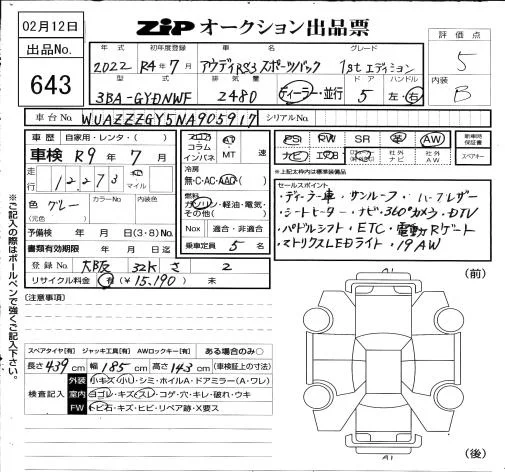 02月12日
出品No.
643
ZiP オークション出品票
評価点
5
内装
B
年式 初年度登録 車名 グレード
2022 R4年7月 アウディRS3 スポーツバック 1st エディション
型式 排気量 ドア ハンドル
3BA-GYDNWF 2480 ディーラー・並行 5 左・右
車台No. WUAZZZGY5NA905917 シリアルNo.
車歴 自家用・レンタ・( )
車検 R9年7月
走行 12273 マイル
色 グレー
(元色)
カラーNo.
内装色
予備検 年 月 日(3・8)No.
書類有効期限 年 月 日迄
登録No. 大阪 32K さ 2
リサイクル料金 有 (¥15,190) 未
コラム
インパネ
AT
MT
速
冷房
無・C・AC・AAC
燃料
ガソリン・軽油・電気・
その他( )
Nox 適合・非適合
乗車定員 5名
PS PW SR 革 AW
ナビ エアB 社外ナビ 社外AW
新車時保証書
スペアキー
*上記太枠内は標準装備品
セールスポイント
・ディーラー車・サンルーフ・ハーフレザー
・シートヒーター・ナビ・360°カメラ・DTV
・パドルシフト・ETC・電動Rゲート
・マトリクスLEDライト・19AW
(注意事項)
スペアタイヤ[有] ジャッキ工具[有] AWロックキー[有] ある場合のみ○
長さ 439cm 幅 185cm 高さ 143cm (車検証上の寸法)
検査記入
外装 小キズ・小U・シミ・ホイルA・ドアミラー(A・ワレ)
室内 ヨゴレ・キズ・スレ・コゲ・穴・キレ・破れ・ウキ
FW トビ石・キズ・ヒビ・リペア跡・X要ス
(前)
(後)
※ご記入の際はボールペンで強くご記入下さい。